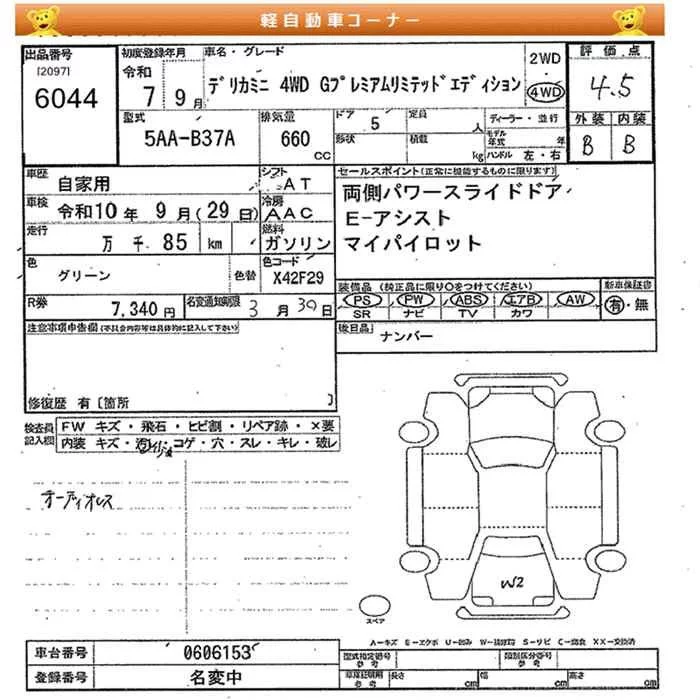 軽自動車コーナー
出品番号
[2097]
6044
初度登録年月
令和
7 9月
車名・グレード
デリカミニ 4WD Gプレミアムリミテッドエディション
2WD
4WD
評価点
4.5
外装 内装
B B
型式
5AA-B37A
排気量
660
cc
ドア
5
定員
人
形状
積載
kg
ディーラー・並行
モデル年式
年
ハンドル 左・右
車歴
自家用
シフト
AT
車検
令和10年 9月(29日)
冷房
AAC
走行
万 千 85 km
燃料
ガソリン
色
グリーン
色替
色コード
X42F29
R券
7,340 円
名変通知期限
3 月 30 日
セールスポイント(正常に機能するものに限ります)
両側パワースライドドア
E-アシスト
マイパイロット
装備品 (純正品に限り○をつけてください)
PS PW ABS エアB AW
SR ナビ TV カワ
新車保証書
有・無
後日品
ナンバー
注意事項申告欄(不具合内容等は具体的に記入して下さい)
修復歴 有〔箇所 〕
検査員記入欄
FW キズ・飛石・ヒビ割・リペア跡・×要
内装 キズ・汚レ・コゲ・穴・スレ・キレ・破レ
オーディオレス
W2
スペア
A-キズ E-エクボ U-凹み W-補修跡 S-サビ C-腐食 XX-交換済
車台番号
0606153
登録番号
名変中
型式指定番号
参考
類別区分番号
参考
車庫証明用
参考
長さ
cm
幅
cm
高さ
cm